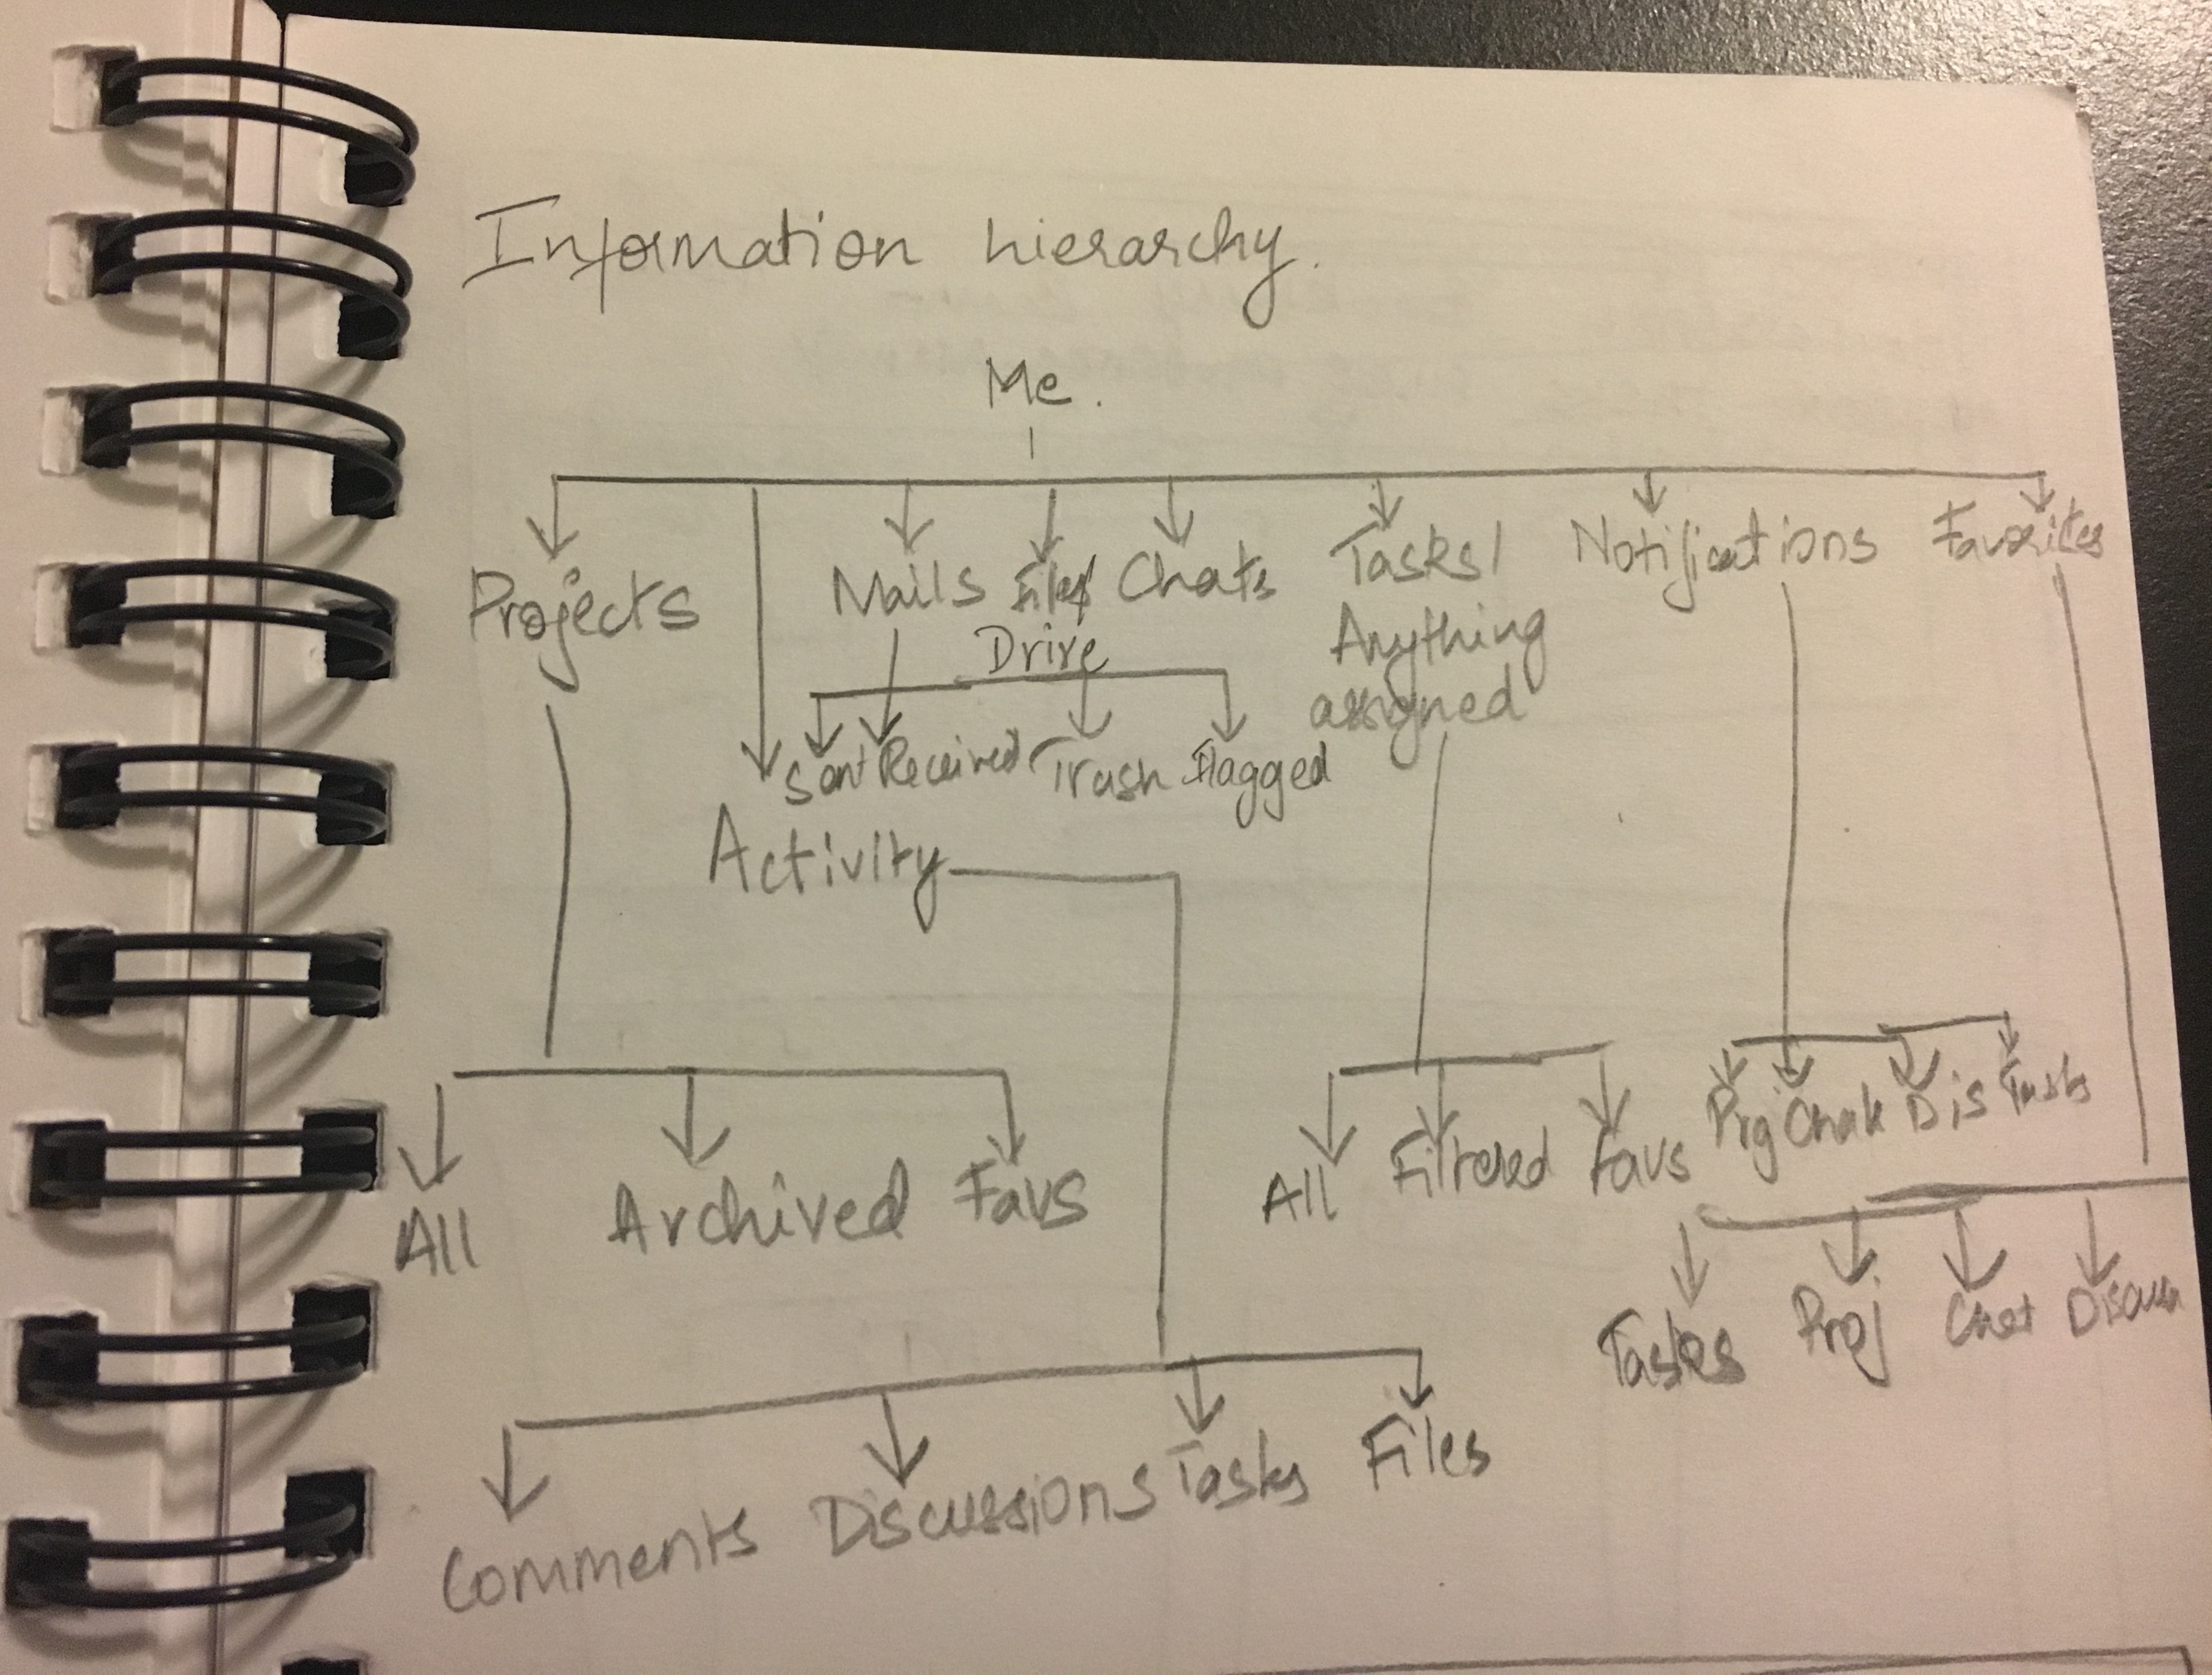 Information hierarchy.
Me.
Projects Mails Files/ Chats Tasks/ Notifications Favorites
Drive Anything
assigned
Sent Received Trash Flagged
Activity
All Archived Favs All Filtered Favs Prj Chats Dis Tasks
Tasks Proj Chat Discuss
Comments Discussions Tasks Files